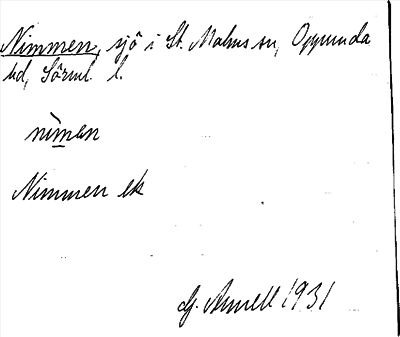 Nimmen, sjö i St. Malms sn, Oppunda
hd, Sörml. l.
nìman
Nimmen ek
G. Arnell 1931